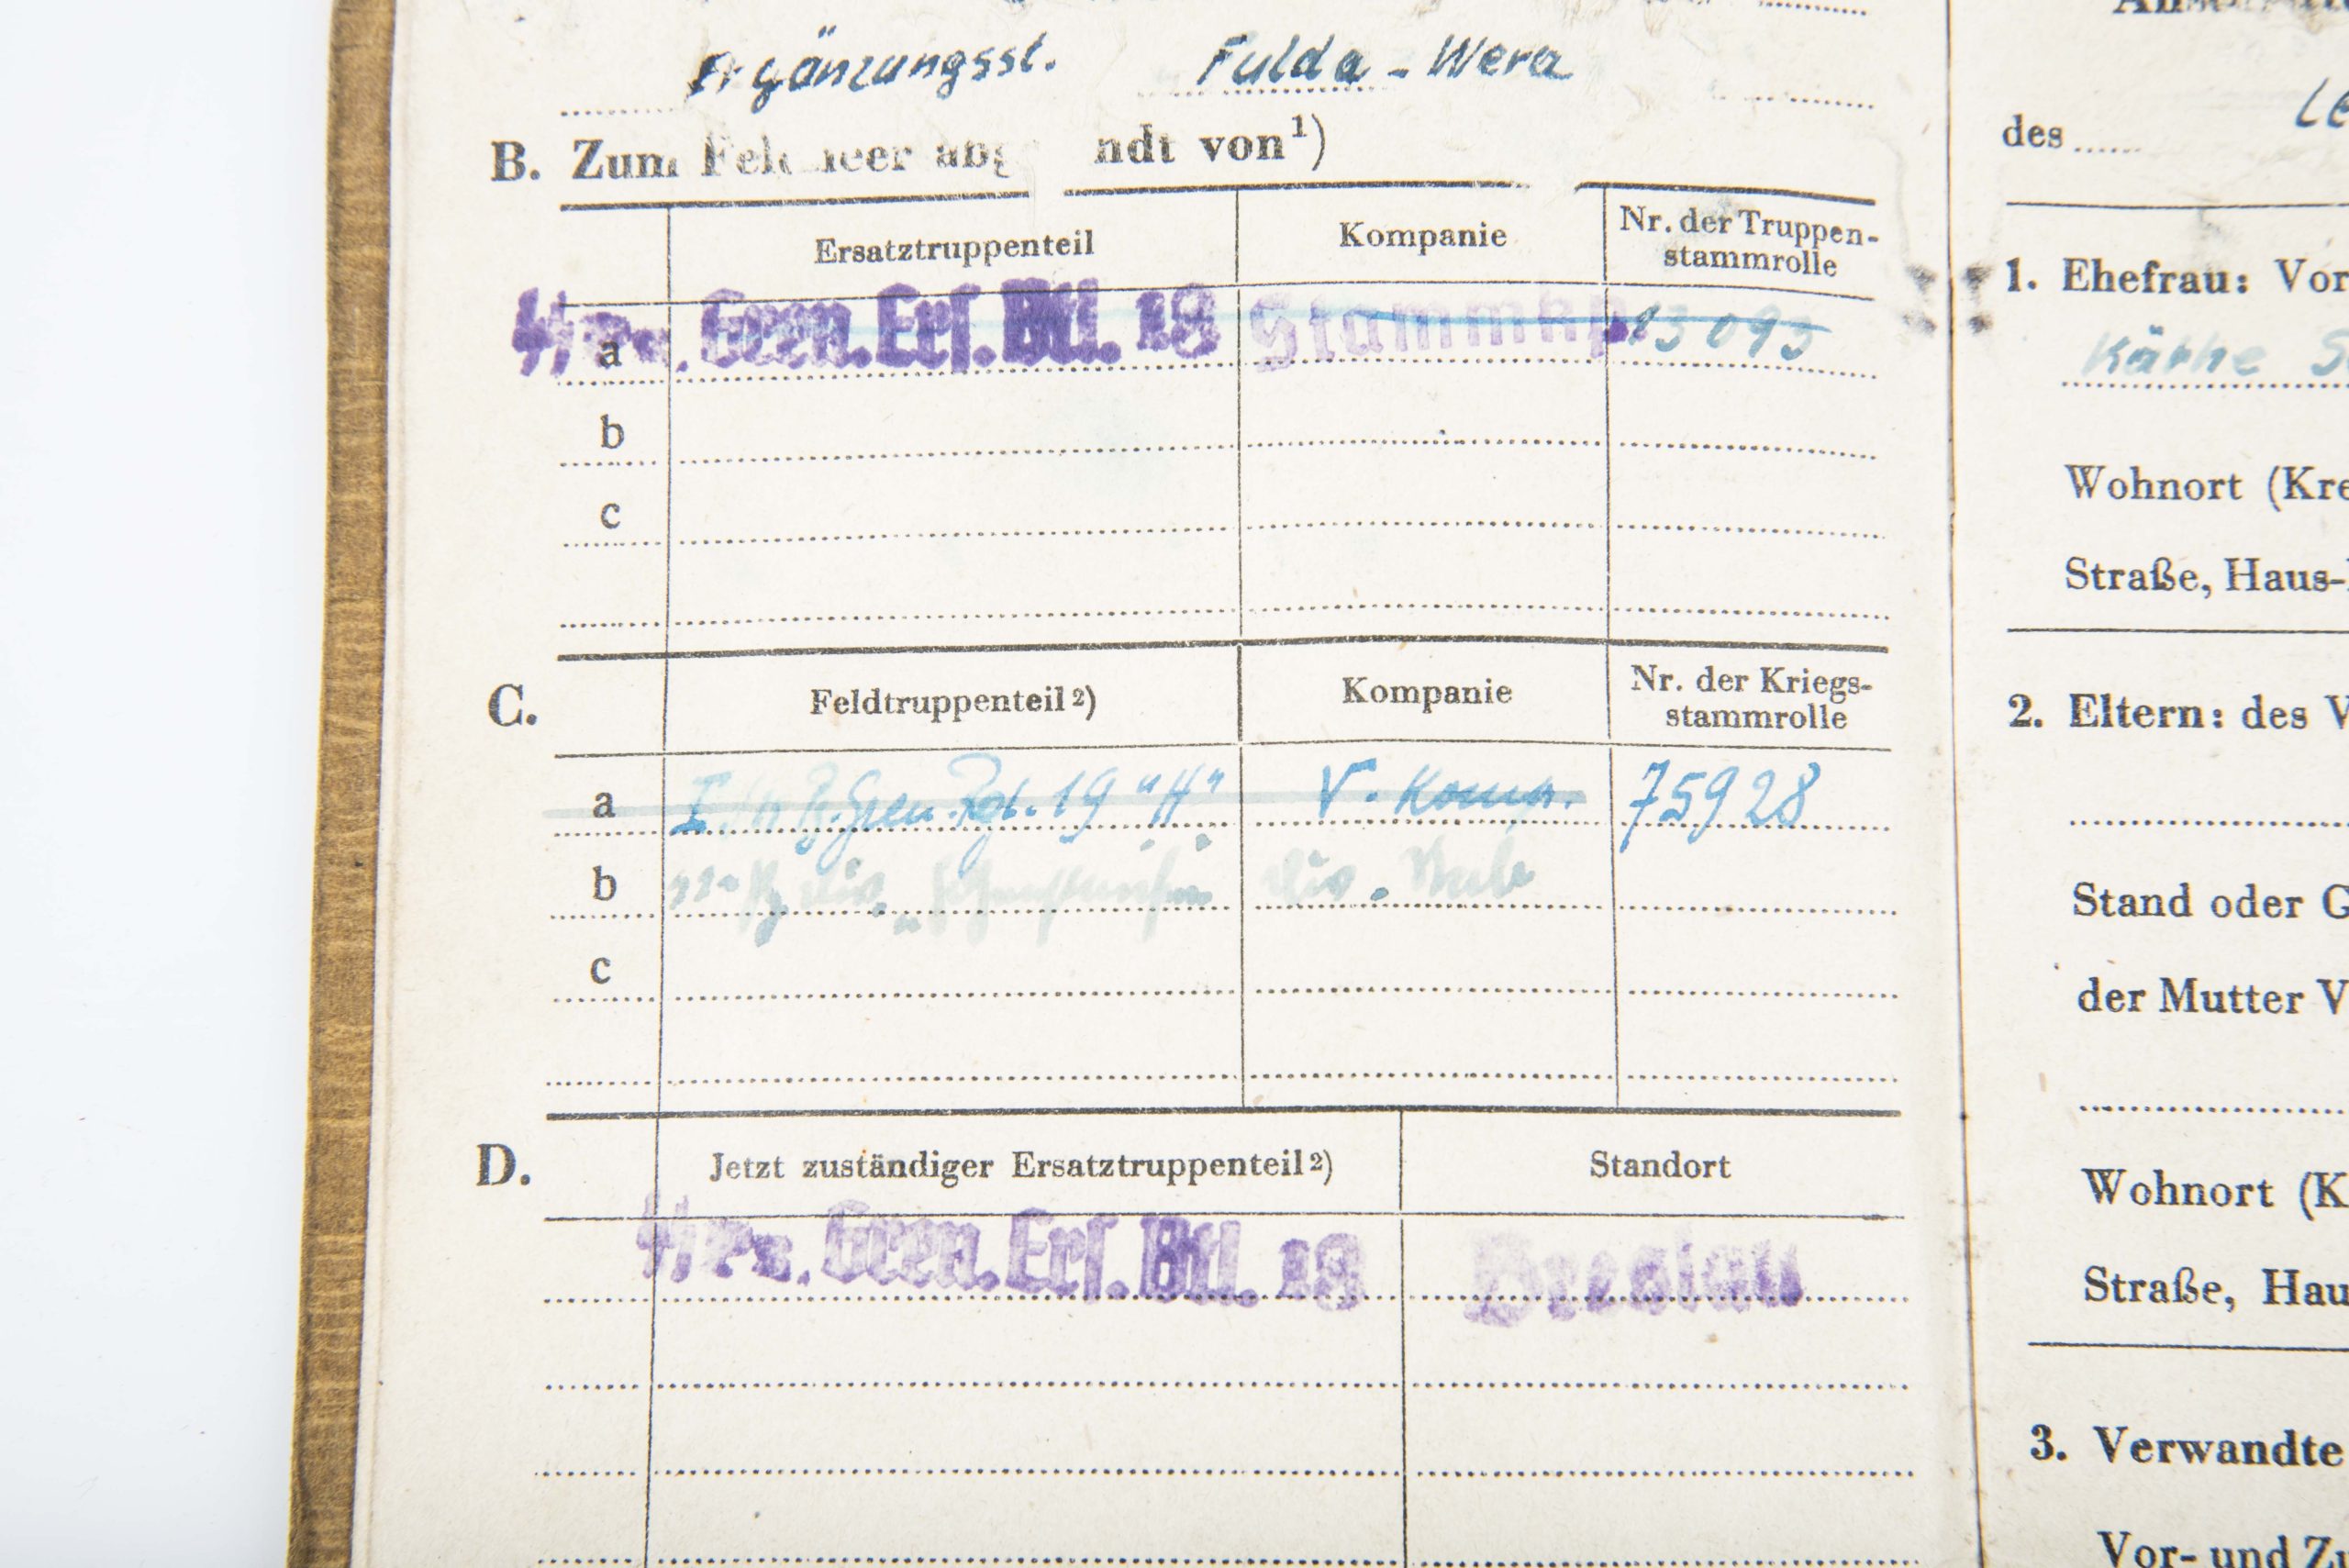 Ergänzungsst. Fulda - Wera
B. Zum Feldheer abg ndt von¹)
Ersatztruppenteil Kompanie Nr. der Truppen-
stammrolle
a ᛋᛋ Pz. Gren. Ers. Btl. 18 Stammkp. 13093
b
c
C. Feldtruppenteil ²) Kompanie Nr. der Kriegs-
stammrolle
a I. Pz. Gren. Rgt. 19 "H" V. Komp. 75928
b Div. Div. Stab
c
D. Jetzt zuständiger Ersatztruppenteil ²) Standort
ᛋᛋ Pz. Gren. Ers. Btl. 18 Breslau
des
1. Ehefrau: Vor
Käthe
Wohnort (Kre
Straße, Haus-
2. Eltern: des V
Stand oder G
der Mutter V
Wohnort (K
Straße, Hau
3. Verwandte
Vor- und Z